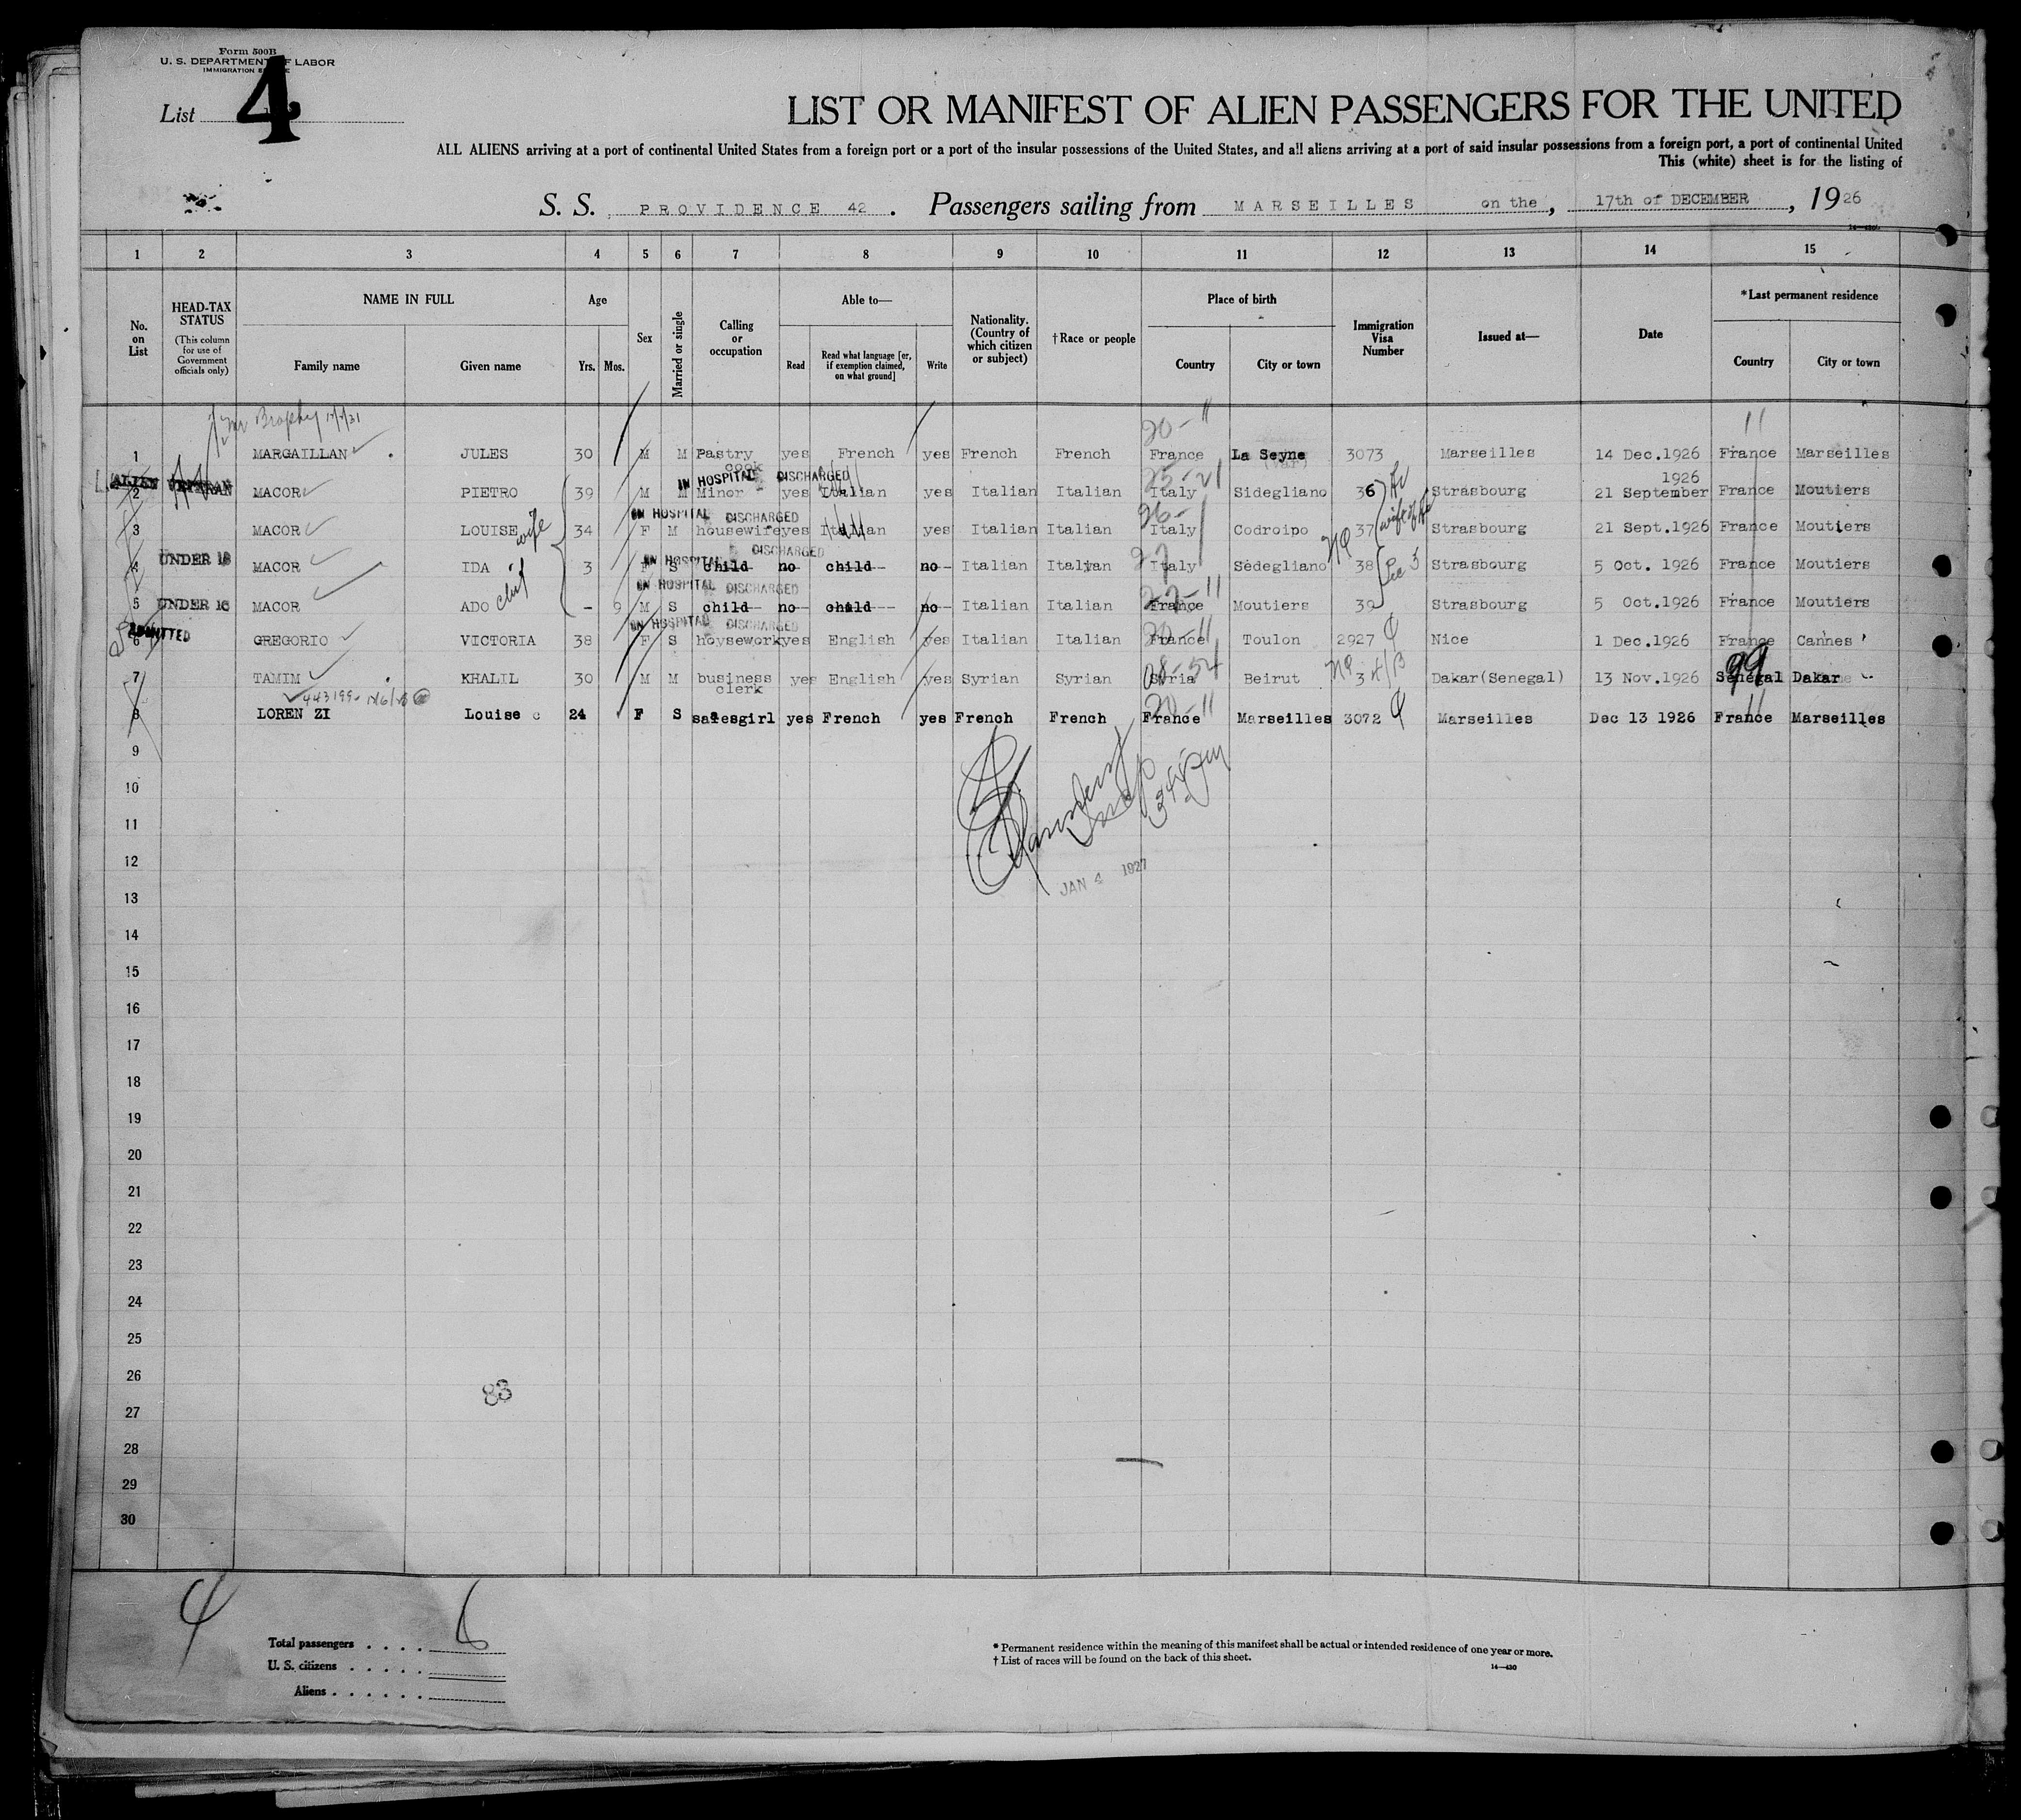 Form 500B
U. S. DEPARTMENT OF LABOR
IMMIGRATION SERVICE
List 4
LIST OR MANIFEST OF ALIEN PASSENGERS FOR THE UNITED
ALL ALIENS arriving at a port of continental United States from a foreign port or a port of the insular possessions of the United States, and all aliens arriving at a port of said insular possessions from a foreign port, a port of continental United
This (white) sheet is for the listing of
S. S. PROVIDENCE 42 . Passengers sailing from MARSEILLES on the , 17th of DECEMBER , 19 26
1 2 3 4 5 6 7 8 9 10 11 12 13 14 15
No. on List
HEAD-TAX STATUS (This column for use of Government officials only)
NAME IN FULL
Family name
Given name
Age
Yrs. Mos.
Sex
Married or single
Calling or occupation
Able to—
Read
Read what language [or, if exemption claimed, on what ground]
Write
Nationality. (Country of which citizen or subject)
† Race or people
Place of birth
Country
City or town
Immigration Visa Number
Issued at—
Date
* Last permanent residence
Country
City or town
20-11 11
1 MARGAILLAN JULES 30 M M Pastry cook yes French yes French French France La Seyne (Var) 3073 Marseilles 14 Dec.1926 France Marseilles
ALIEN VETERAN
IN HOSPITAL DISCHARGED
2 MACOR PIETRO 39 M M Minor yes Italian yes Italian Italian Italy Sidegliano 36 Strasbourg 21 September 1926 France Moutiers
IN HOSPITAL DISCHARGED
3 MACOR LOUISE wife 34 F M housewife yes Italian yes Italian Italian Italy Codroipo 37 Strasbourg 21 Sept.1926 France Moutiers
IN HOSPITAL DISCHARGED
4 UNDER 16 MACOR IDA 3 F S child no child no Italian Italian Italy Sedegliano 38 Strasbourg 5 Oct. 1926 France Moutiers
IN HOSPITAL DISCHARGED
5 UNDER 16 MACOR ADO - 9 M S child no child no Italian Italian France Moutiers 39 Strasbourg 5 Oct.1926 France Moutiers
IN HOSPITAL DISCHARGED
6 ADMITTED GREGORIO VICTORIA 38 F S housework yes English yes Italian Italian France Toulon 2927 Nice 1 Dec.1926 France Cannes
7 TAMIM KHALIL 30 M M business clerk yes English yes Syrian Syrian Syria Beirut 34 Dakar(Senegal) 13 Nov.1926 Senegal Dakar
99
8 LOREN ZI Louise 24 F S salesgirl yes French yes French French France Marseilles 3072 Marseilles Dec 13 1926 France Marseilles
9
10
11
12
JAN 4 1927
13
14
15
16
17
18
19
20
21
22
23
24
25
26
83
27
28
29
30
Total passengers . . . .
U. S. citizens . . . . .
Aliens . . . . . .
* Permanent residence within the meaning of this manifest shall be actual or intended residence of one year or more.
† List of races will be found on the back of this sheet.
14—430